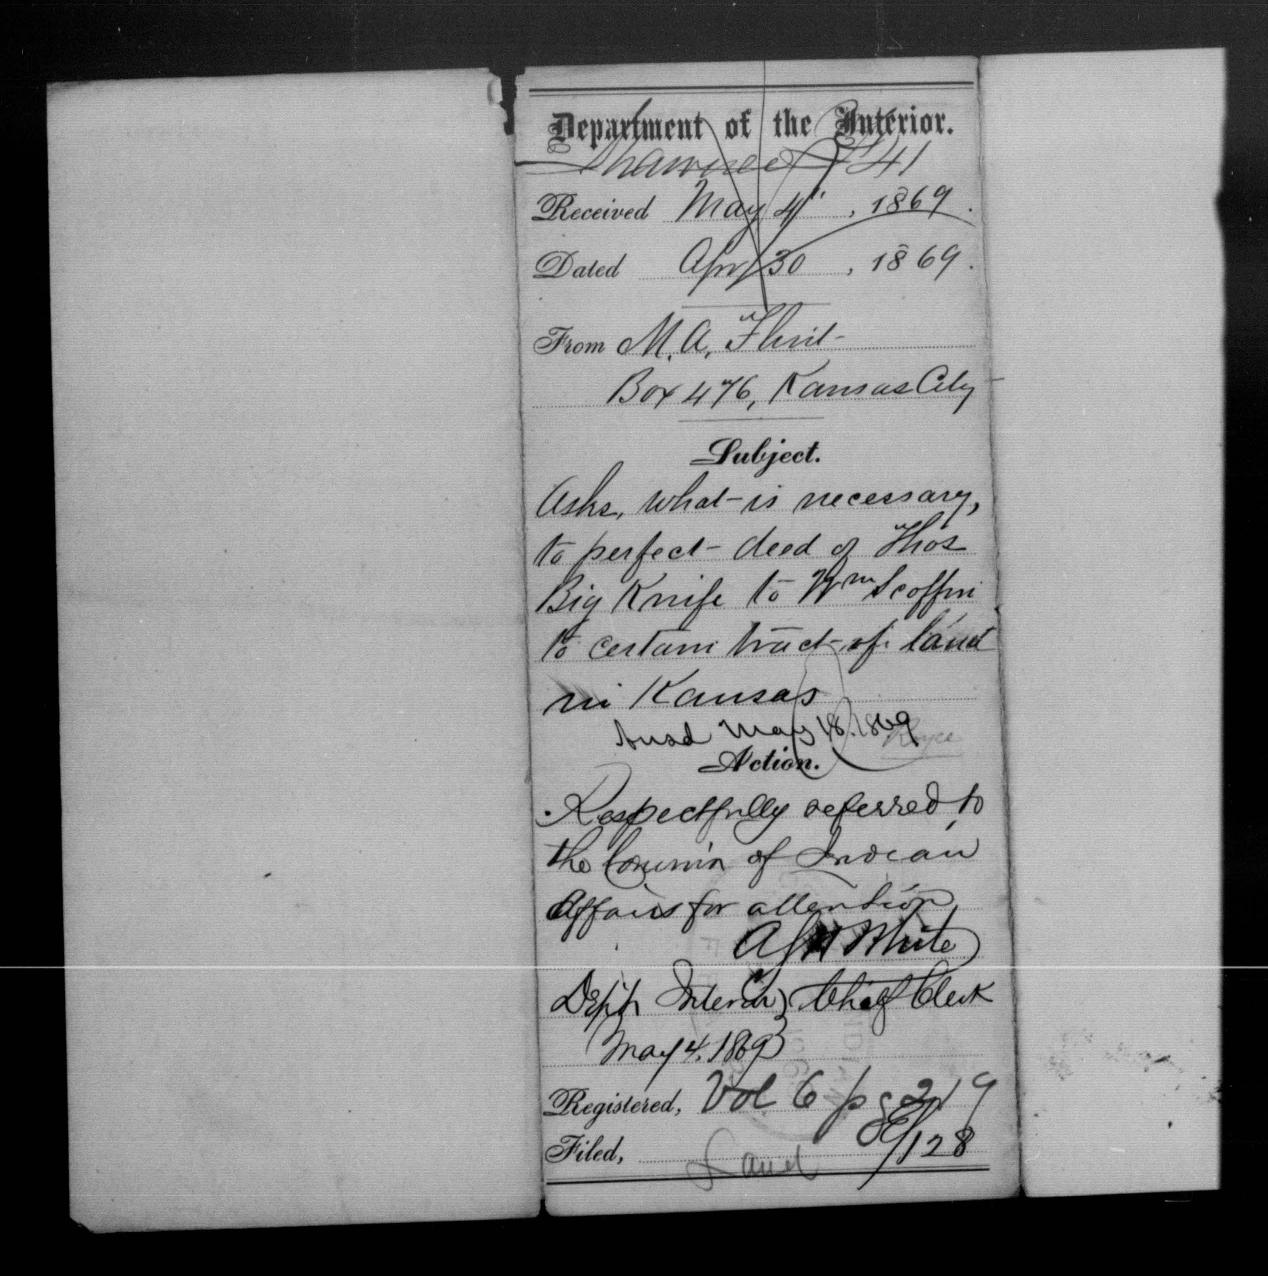 Department of the Interior.
Shawnee I 41
Received May 4", 1869.
Dated Apr 30, 1869.
From M. A. Flint
Box 476, Kansas City
Subject.
Asks, what is necessary,
to perfect deed of Thos
Big Knife to Wm Scoffin
to certain tract of land
in Kansas
Ansd May 18. 1869
Royce
Action.
Respectfully referred to
the Commr of Indian
Affairs for attention
White
Dept Interior } Chief Clerk
May 4. 1869
Registered, Vol 6 pg 219
Filed,
Land
128